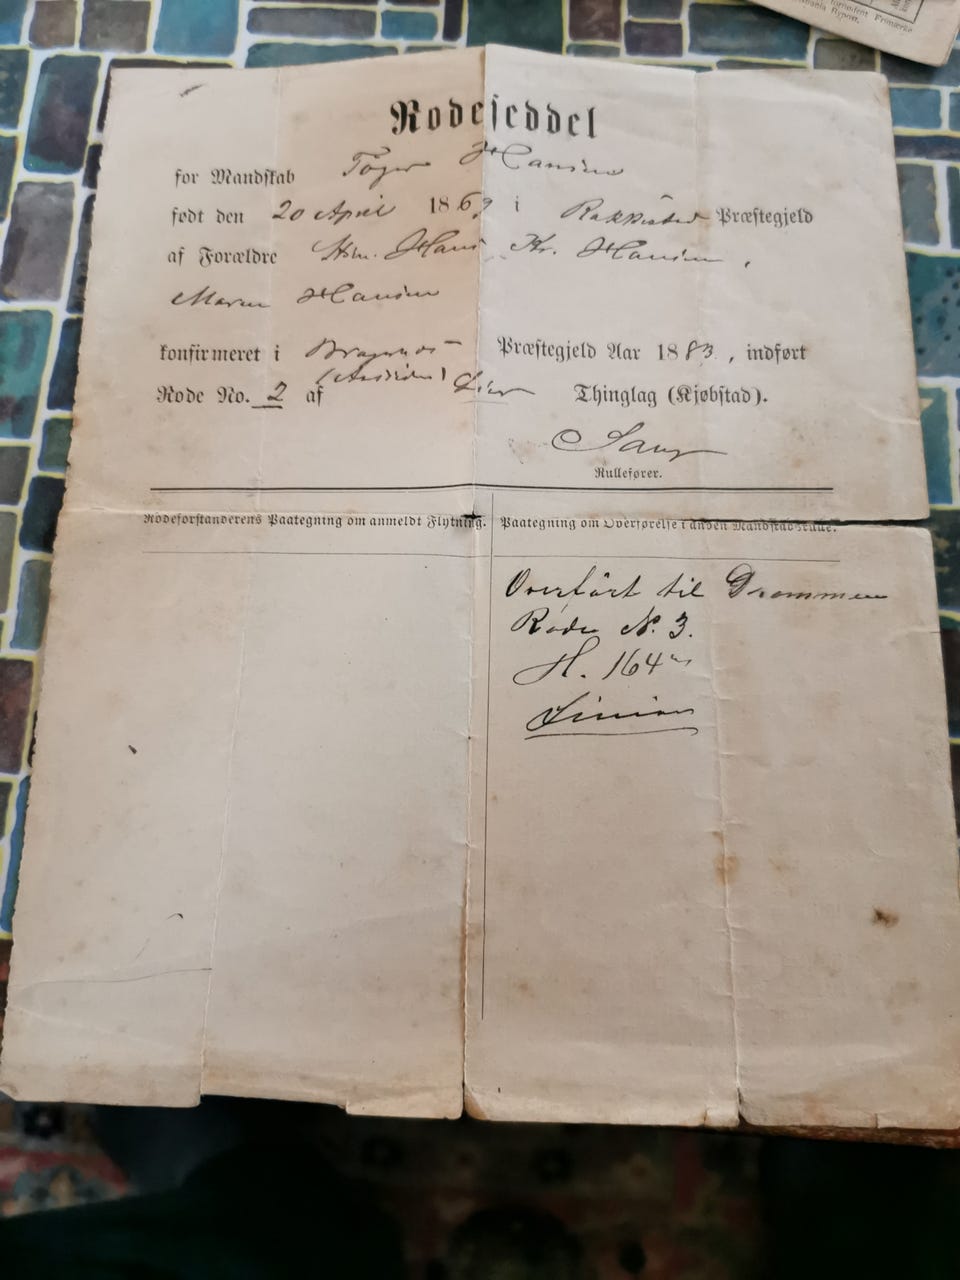 Rodeseddel
for Mandskab Hansen
født den 20 April 1869 i Rakkestad Præstegjeld
af Forældre Hans Kr. Hansen,
Maren Hansen
konfirmeret i Bragernes Præstegjeld Aar 1883, indført
Rode No. 2 af Lier Thinglag (Kjøbstad).
Rullefører.
Rodeforstanderens Paategning om anmeldt Flytning.
Paategning om Overførelse i anden Mandskabsrulle.
Overført til Drammen
Rode N. 3.
H. 164